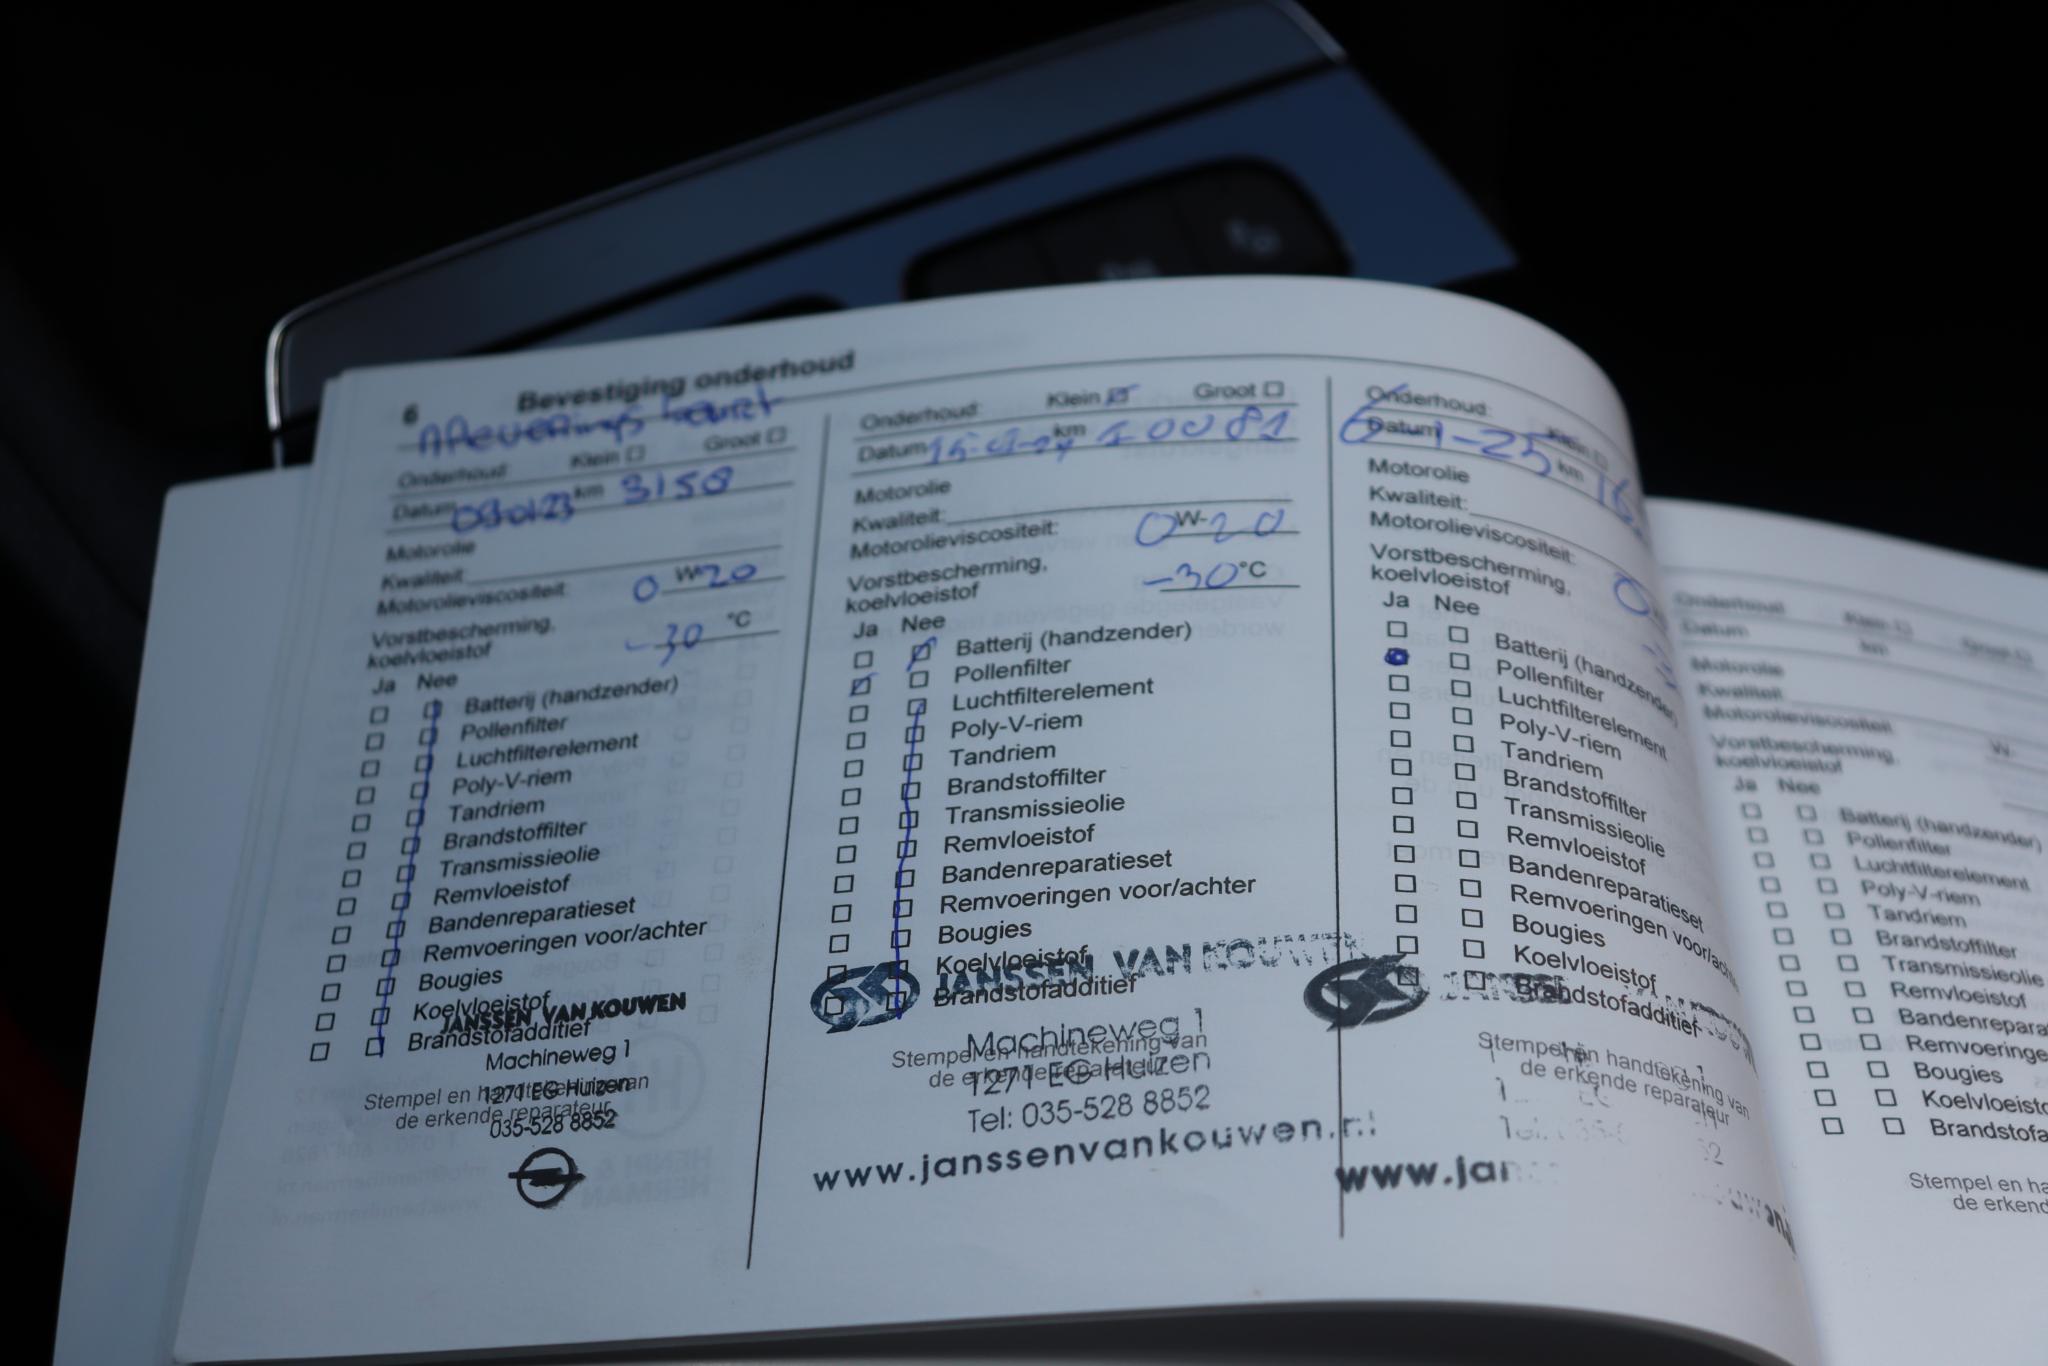 6 Bevestiging onderhoud
Afleverings beurt
Onderhoud: Klein Groot
Datum 090123 km 3158
Motorolie
Kwaliteit:
Motorolieviscositeit: 0 W- 20
Vorstbescherming,
koelvloeistof -30 °C
Ja Nee
Batterij (handzender)
Pollenfilter
Luchtfilterelement
Poly-V-riem
Tandriem
Brandstoffilter
Transmissieolie
Remvloeistof
Bandenreparatieset
Remvoeringen voor/achter
Bougies
Koelvloeistof
Brandstofadditief
JANSSEN VAN KOUWEN
Machineweg 1
1271 EG Huizen
035-528 8852
Stempel en handtekening van
de erkende reparateur
Onderhoud: Klein Groot
Datum km 10081
Motorolie
Kwaliteit:
Motorolieviscositeit: 0 W- 20
Vorstbescherming,
koelvloeistof -30 °C
Ja Nee
Batterij (handzender)
Pollenfilter
Luchtfilterelement
Poly-V-riem
Tandriem
Brandstoffilter
Transmissieolie
Remvloeistof
Bandenreparatieset
Remvoeringen voor/achter
Bougies
Koelvloeistof
Brandstofadditief
JANSSEN VAN KOUWEN
Machineweg 1
1271 EG Huizen
Tel: 035-528 8852
www.janssenvankouwen.nl
Stempel en handtekening van
de erkende reparateur
Onderhoud: Klein
Datum 6-1-25 km
Motorolie
Kwaliteit:
Motorolieviscositeit: 0
Vorstbescherming,
koelvloeistof
Ja Nee
Batterij (handzender)
Pollenfilter
Luchtfilterelement
Poly-V-riem
Tandriem
Brandstoffilter
Transmissieolie
Remvloeistof
Bandenreparatieset
Remvoeringen voor/ach
Bougies
Koelvloeistof
Brandstofadditief
Stempel en handtekening van
de erkende reparateur
www.jan
Onderhoud Klein Groot
Datum km
Motorolie
Kwaliteit
Motorolieviscositeit W-
Vorstbescherming,
koelvloeistof
Ja Nee
Batterij (handzender)
Pollenfilter
Luchtfilterelement
Poly-V-riem
Tandriem
Brandstoffilter
Transmissieolie
Remvloeistof
Bandenrepara
Remvoeringe
Bougies
Koelvloeisto
Brandstofa
Stempel en ha
de erkend